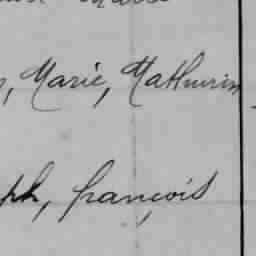 , Marie, Mathurin
ph, françois